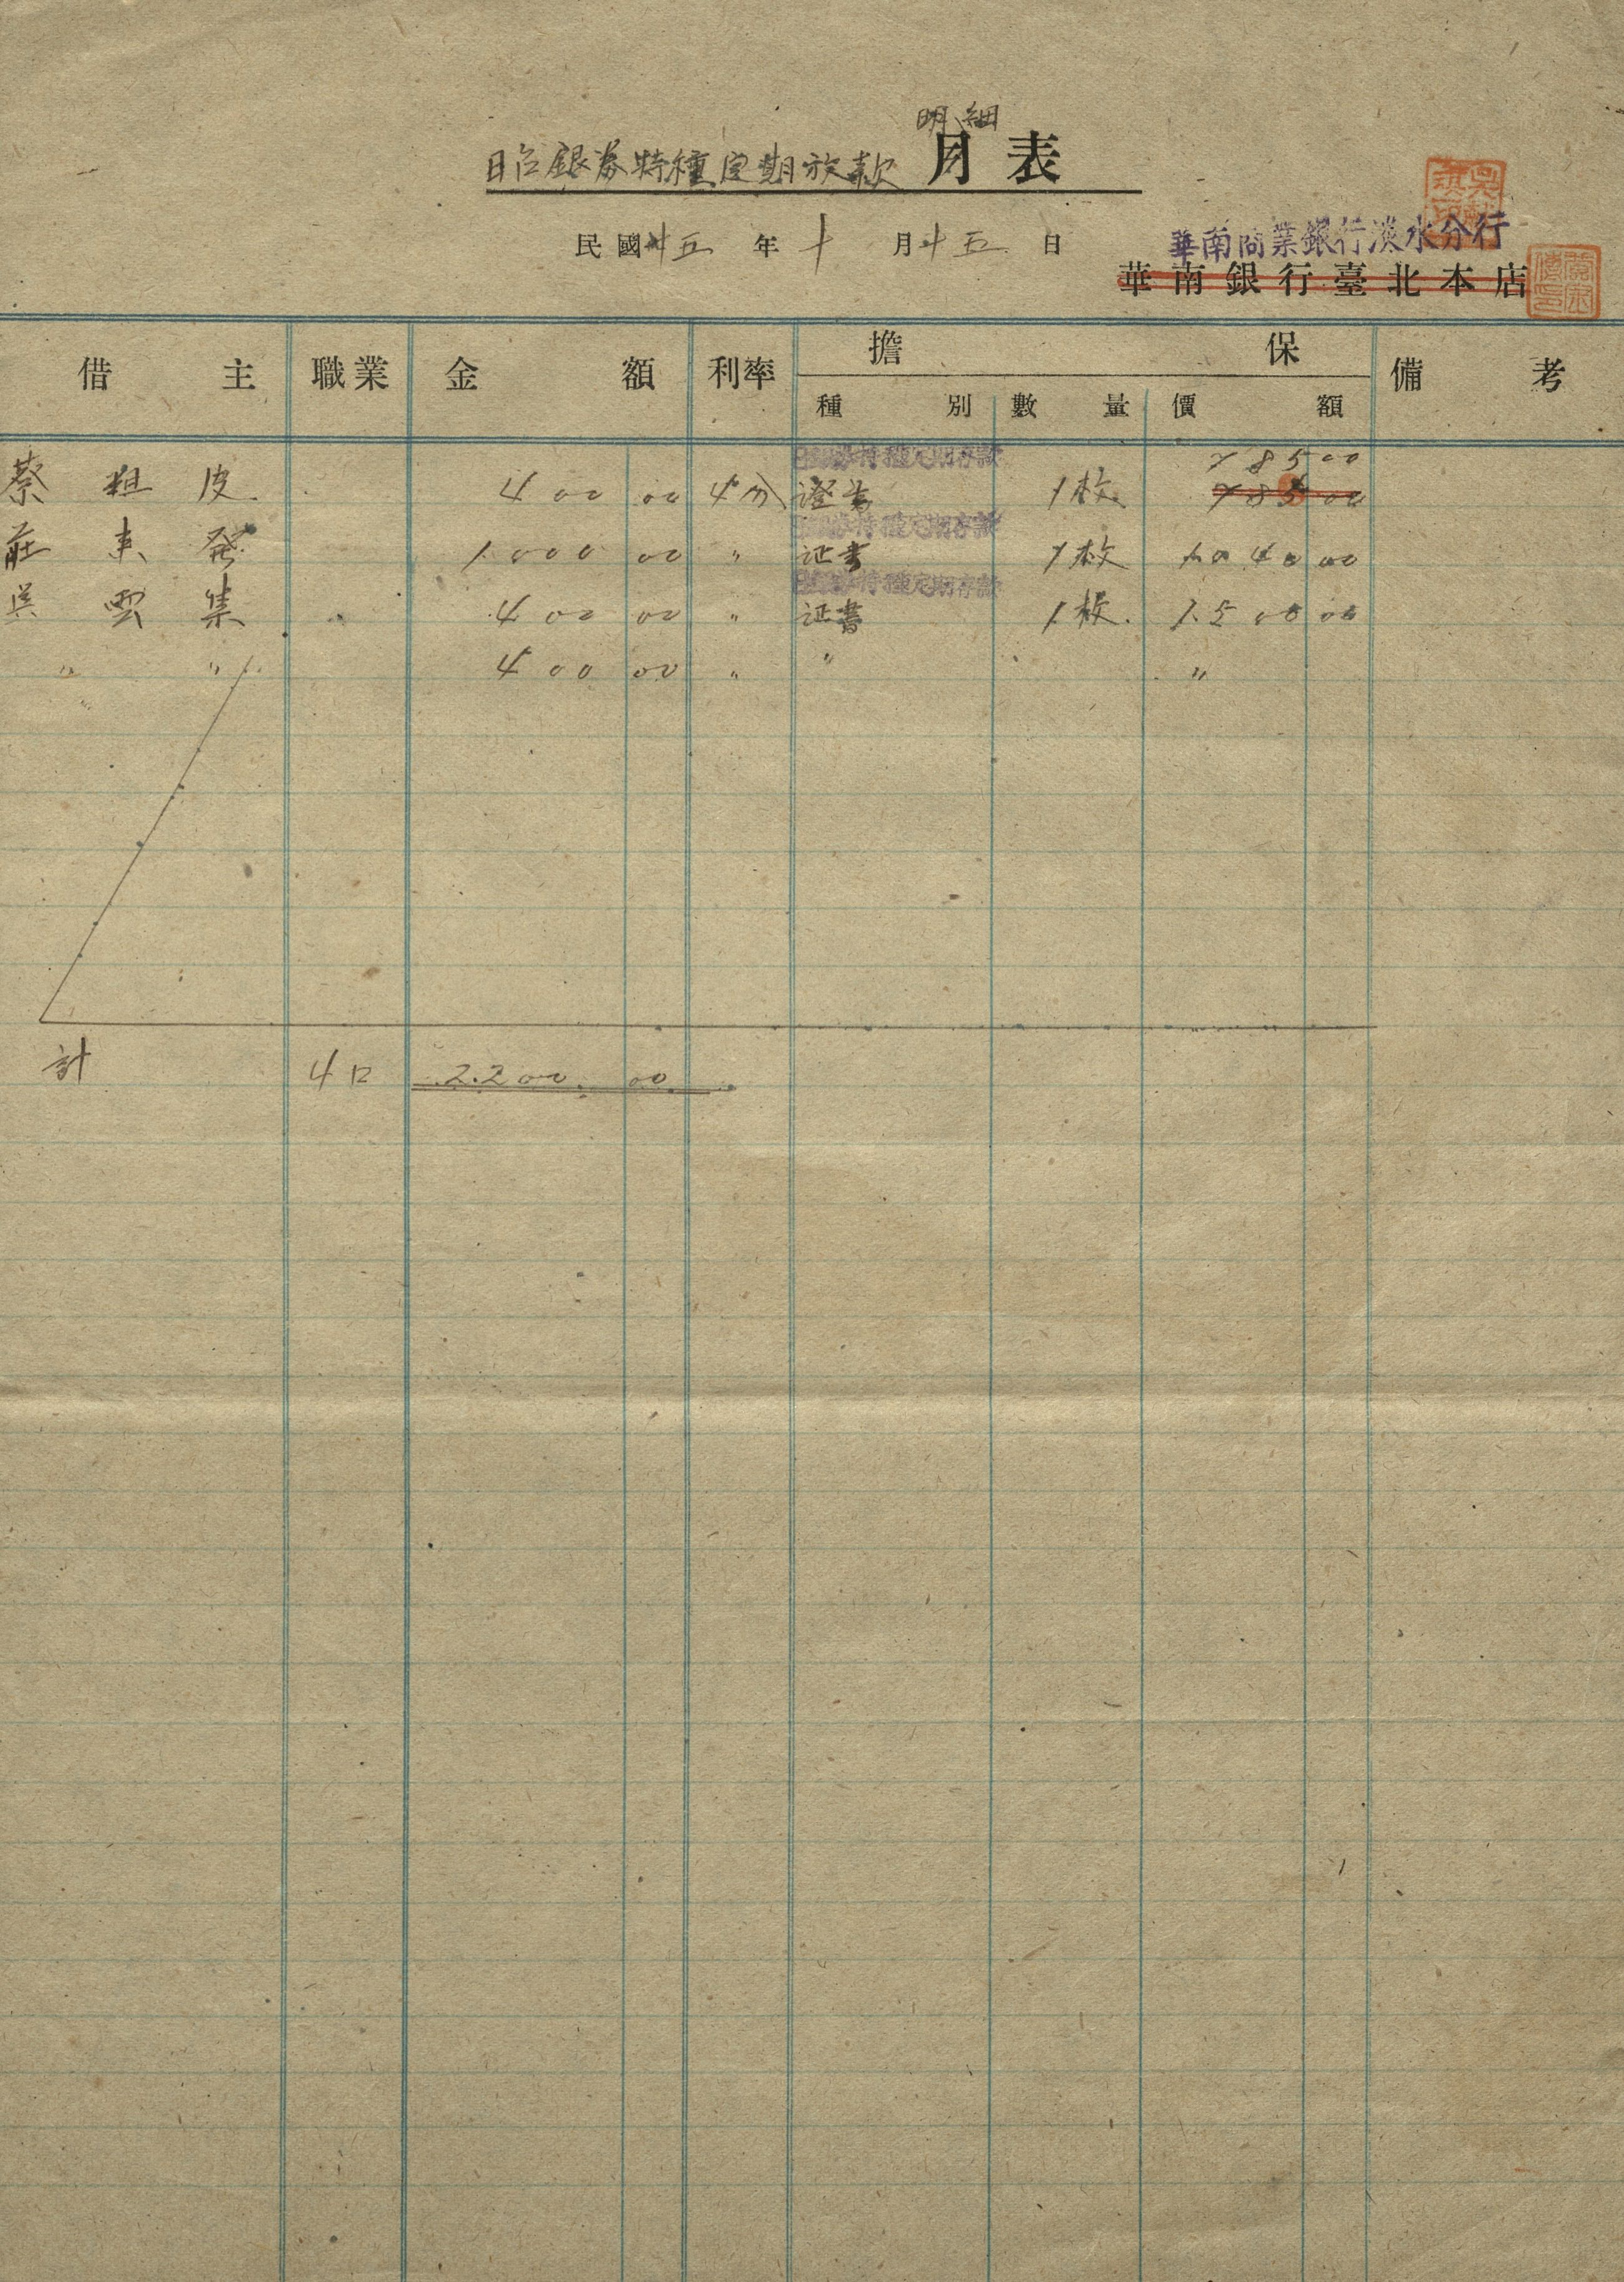 明細
日台銀券特種定期放款 月表
民國卅五年十月十五日
華南商業銀行淡水分行
華南銀行臺北本店
借主 職業 金額 利率 擔保 備考
種別 數量 價額
特種定期存款 785 00
蔡粗皮 400 00 4分 證書 1枚 785 00
特種定期存款
莊東発 1.000 00 〃 证書 1枚 1.040 00
特種定期存款
吳雲集 400 00 〃 证書 1枚. 1.500 00
〃 〃 400 00 〃 〃 〃
計 4口 2.200 00